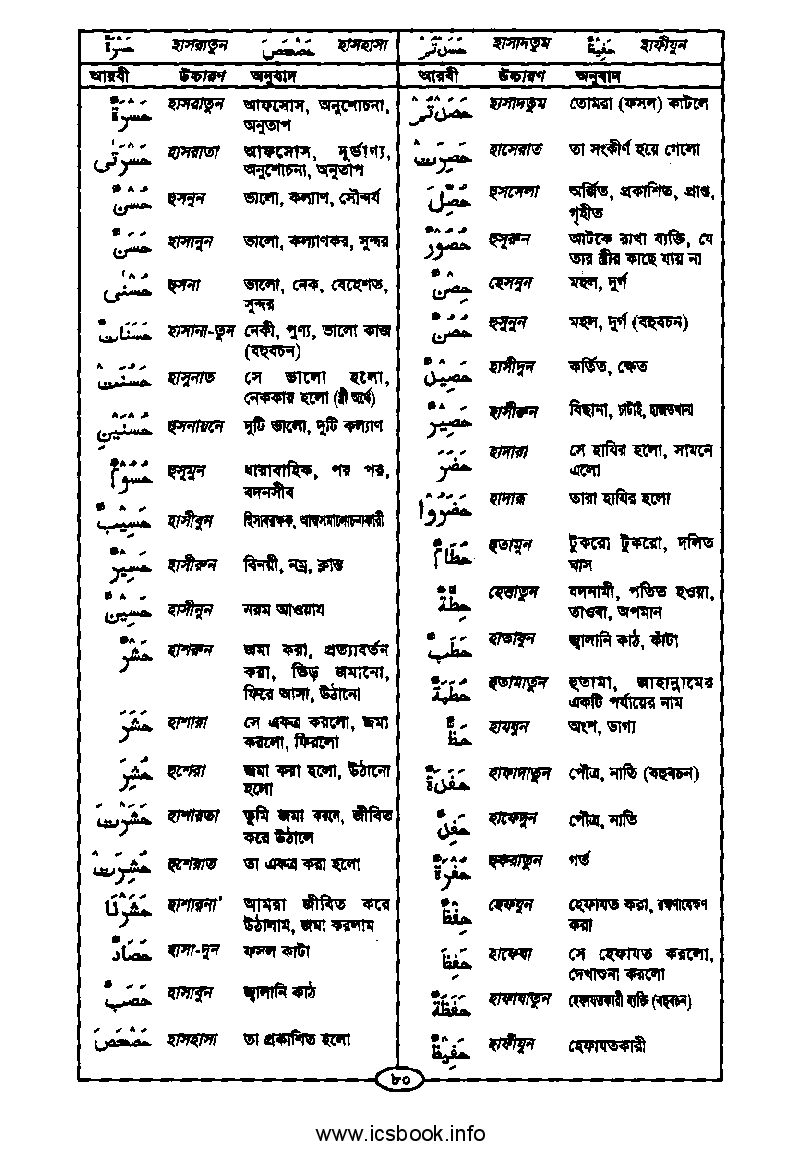 حَسْرَةٌ হাসরাতুন حَصْحَصَ হাসহাসা
আরবী উচ্চারণ অনুবাদ
حَسْرَةٌ হাসরাতুন আফসোস, অনুশোচনা,
অনুতাপ
حَسْرَتٰى হাসরাতা আফসোস, দুর্ভাগ্য,
অনুশোচনা, অনুতাপ
حُسْنٌ হুসনুন ভালো, কল্যাণ, সৌন্দর্য
حَسَنٌ হাসানুন ভালো, কল্যাণকর, সুন্দর
حُسْنٰى হুসনা ভালো, নেক, বেহেশত,
সুন্দর
حَسَنَاتٌ হাসানা-তুন নেকী, পুণ্য, ভালো কাজ
(বহুবচন)
حَسُنَتْ হাসুনাত সে ভালো হলো,
নেককার হলো (স্ত্রী অর্থে)
حُسْنَيَيْنِ হুসনায়নে দুটি ভালো, দুটি কল্যাণ
حُسُوْمٌ হুসূমুন ধারাবাহিক, পর পর,
বদনসীব
حَسِيْبٌ হাসীবুন হিসাবরক্ষক, আত্মসমালোচনাকারী
حَسِيْرٌ হাসীরুন বিনয়ী, নম্র, ক্লান্ত
حَسِيْسٌ হাসীসুন নরম আওয়ায
حَشْرٌ হাশরুন জমা করা, প্রত্যাবর্তন
করা, ভিড় জমানো,
ফিরে আসা, উঠানো
حَشَرَ হাশারা সে একত্র করলো, জমা
করলো, ফিরলো
حُشِرَ হুশেরা জমা করা হলো, উঠানো
হলো
حَشَرْتَ হাশারতা তুমি জমা করলে, জীবিত
করে উঠালে
حُشِرَتْ হুশেরাত তা একত্র করা হলো
حَشَرْنَا হাশারনা আমরা জীবিত করে
উঠালাম, জমা করলাম
حَصَادٌ হাসা-দুন ফসল কাটা
حَصَبٌ হাসাবুন জ্বালানি কাঠ
حَصْحَصَ হাসহাসা তা প্রকাশিত হলো
حَصَدْتُّمْ হাসাদতুম حَفِيْظٌ হাফীযুন
আরবী উচ্চারণ অনুবাদ
حَصَدْتُّمْ হাসাদতুম তোমরা (ফসল) কাটলে
حَصِرَتْ হাসেরাত তা সংকীর্ণ হয়ে গেলো
حُصِّلَ হুসসেলা অর্জিত, প্রকাশিত, প্রাপ্ত,
গৃহীত
حَصُوْرٌ হুসূরুন আটকে রাখা ব্যক্তি, যে
তার স্ত্রীর কাছে যায় না
حِصْنٌ হেসনুন মহল, দুর্গ
حُصُنٌ হুসুনুন মহল, দুর্গ (বহুবচন)
حَصِيْدٌ হাসীদুন কর্তিত, ক্ষেত
حَصِيْرٌ হাসীরুন বিছানা, চাটাই, হাজতখানা
حَضَرَ হাদারা সে হাযির হলো, সামনে
এলো
حَضَرُوْا হাদারূ তারা হাযির হলো
حُطَامٌ হুতামুন টুকরো টুকরো, দলিত
ঘাস
حِطَّةٌ হেত্তাতুন বদনামী, পতিত হওয়া,
তাওবা, অপমান
حَطَبٌ হাতাবুন জ্বালানি কাঠ, কাঁটা
حُطَمَةٌ হুতামাতুন হুতামা, জাহান্নামের
একটি পর্যায়ের নাম
حَظٌّ হাযযুন অংশ, ভাগ্য
حَفَدَةٌ হাফাদাতুন পৌত্র, নাতি (বহুবচন)
حَفِدٌ হাফেদুন পৌত্র, নাতি
حُفْرَةٌ হুফরাতুন গর্ত
حِفْظٌ হেফযুন হেফাযত করা, রক্ষণাবেক্ষণ
করা
حَفِظَ হাফেযা সে হেফাযত করলো,
দেখাশুনা করলো
حَفَظَةٌ হাফাযাতুন হেফাযতকারী ব্যক্তি (বহুবচন)
حَفِيْظٌ হাফীযুন হেফাযতকারী
৮০
www.icsbook.info